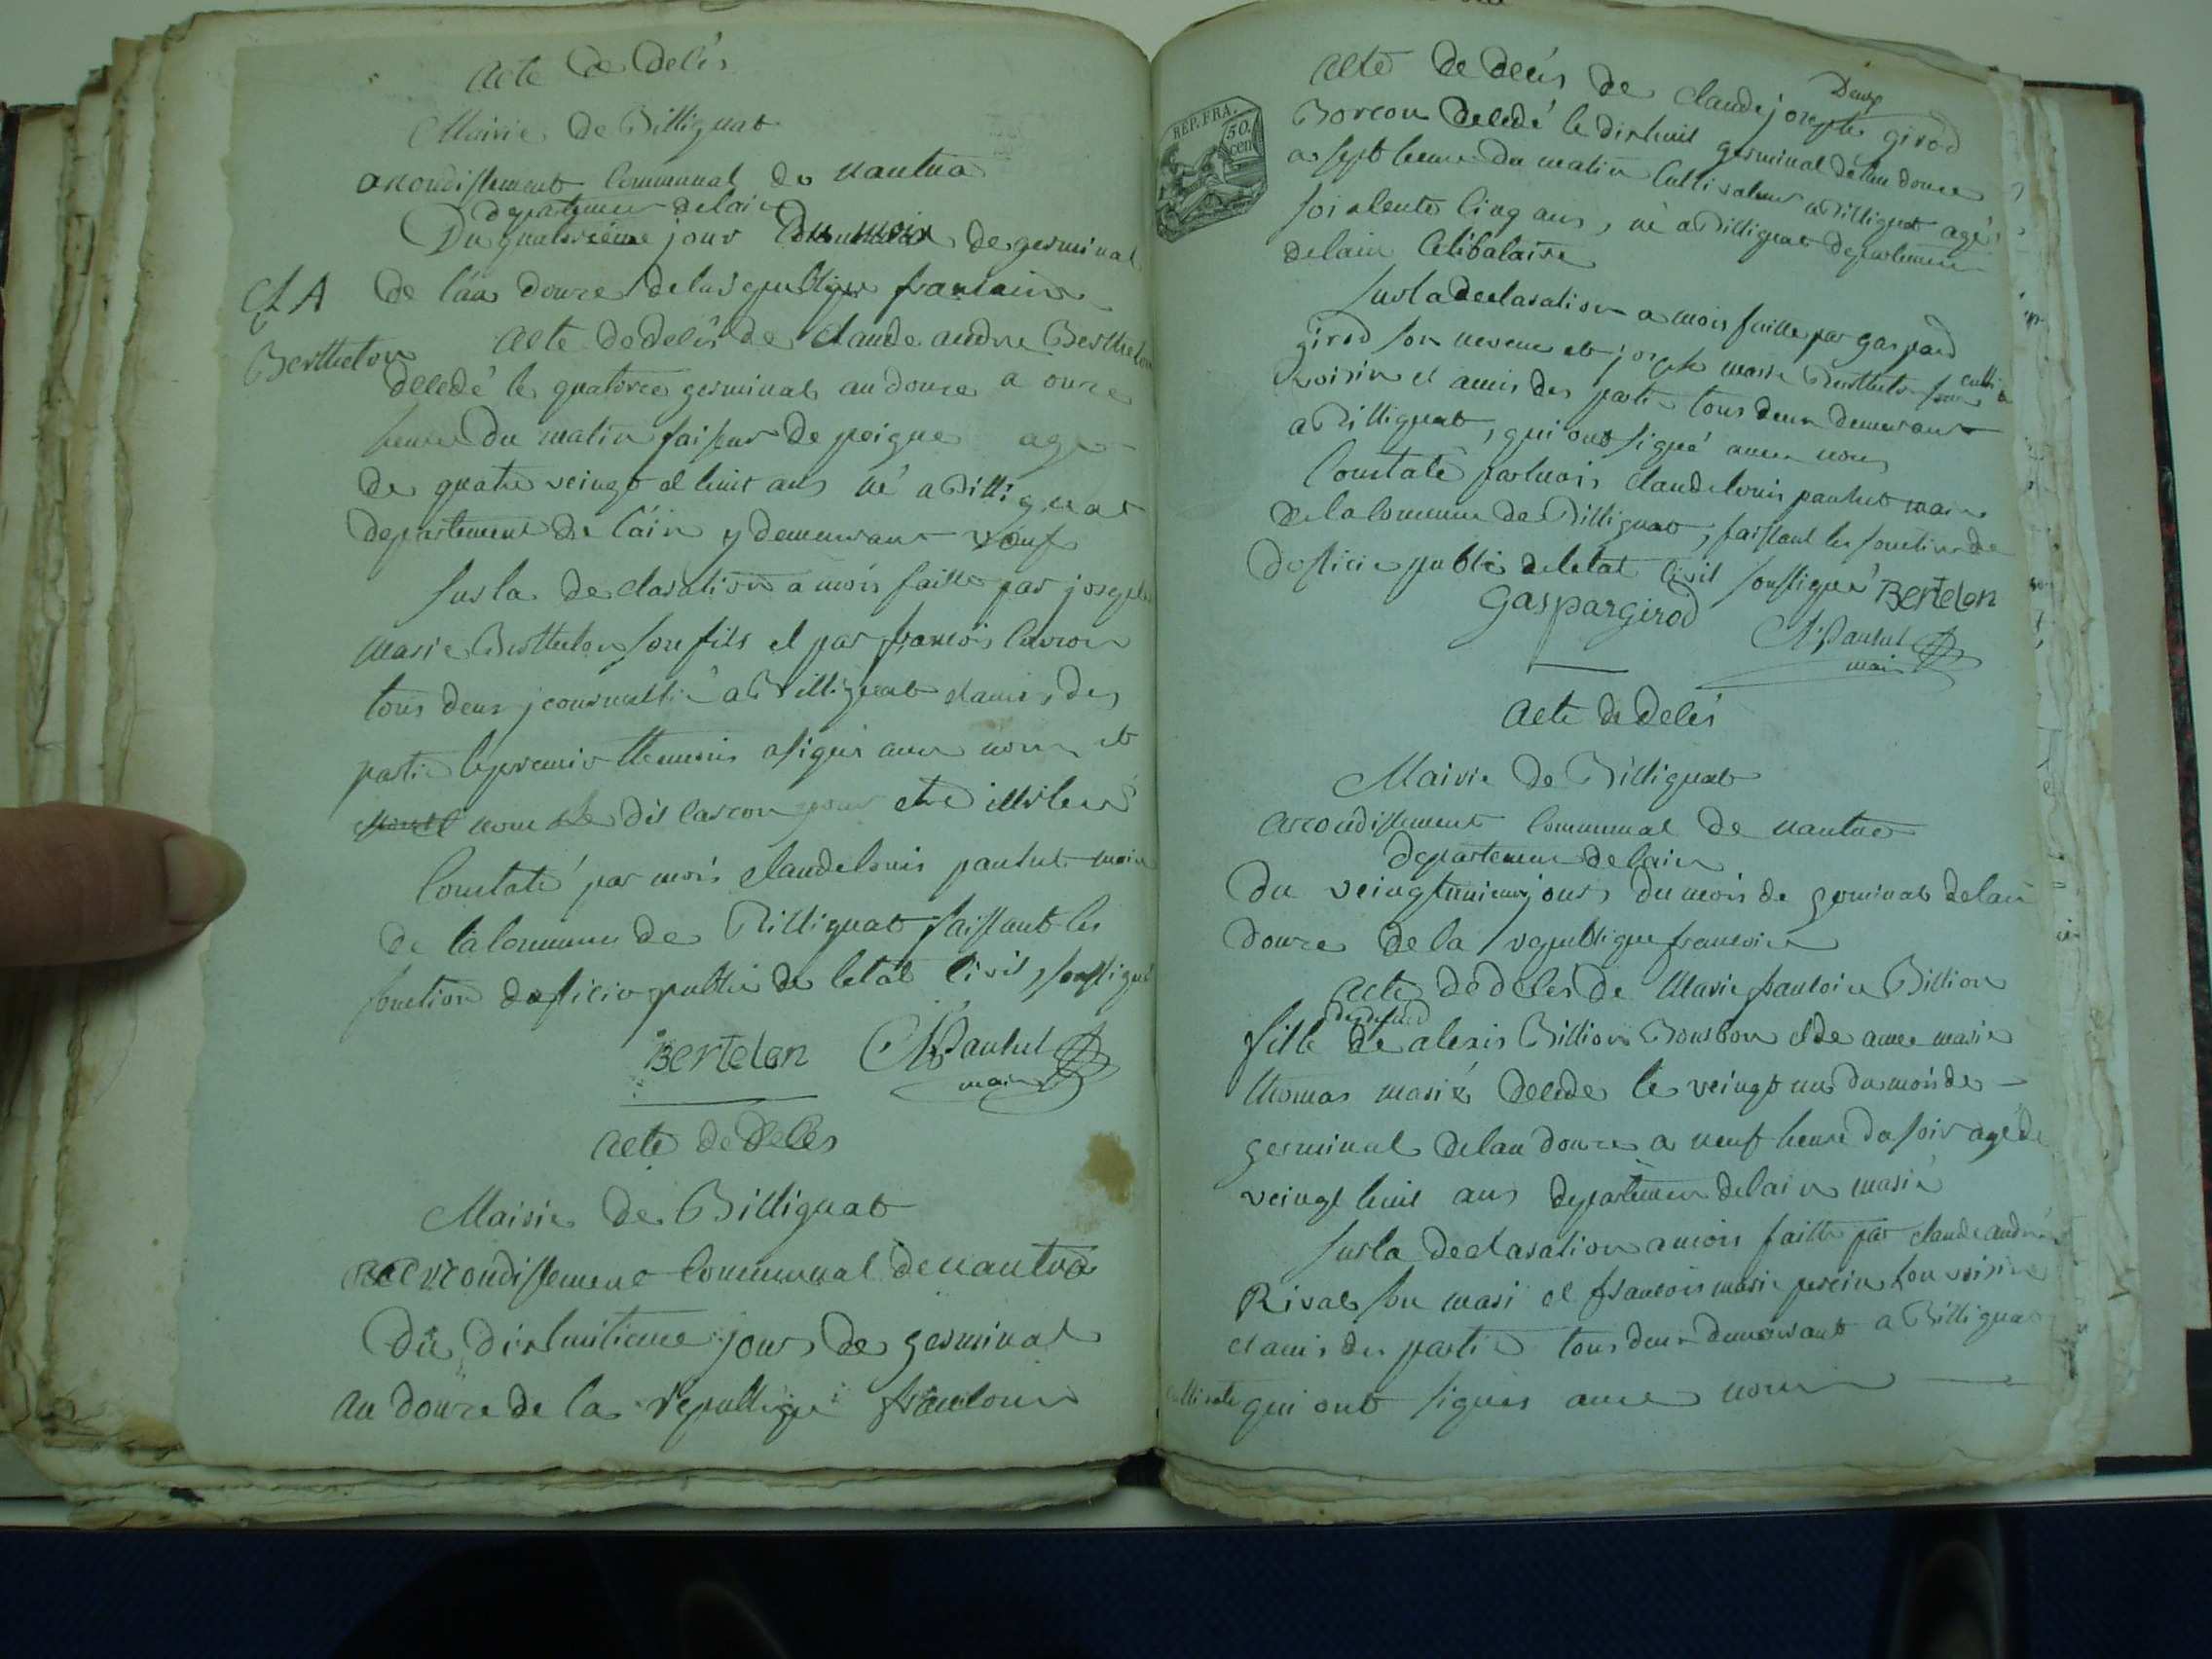 acte de decés
Mairie de Billignat
arrondissement communal de nantua
departemen delain
Du quatorzieme jour du mois de germinal
de lan douze de la republique
C A
Berthelon
acte de decés de claude andre Berthelon
decedé le quatorze germinal an douze a onze
heure du matin faiseur de peigne age
de quatre veingt et huit ans né a Billignat
departement de l'ain y demeurant veuf
sur la declaration a mois faitte par joseph
marie Berthelon son fils et par francois
tous deux a Billignat et amis des
partie le premier a signé avec nous et
nom le dit pour etre illiteré
Constaté par mois claude louis paulut maire
de la commune de Billignat faissant les
fonction doficier public de letat civil, soussigné
Bertelon Cl Paulut
maire
acte de decés
Mairie de Billignat
arrondissement communal de nantua
du dixhuitieme jour de germinal
an douze de la republique
REP. FRA.
50.
cen
Deux
acte de decés de claude joseph girod
Borcon decedé le dixhuit germinal de lan douze
a sept heure du matin cultivateur a Billignat agé
soisalente cinq ans, né a Billignat departemen
delain celibataire
sur la declaration a mois faitte par gaspard
girod son neveux et joseph marie Berthelon
voisin et amis des partie tous deux demeurant
a Billignat, qui ont signé avec nous
Constaté par mois claude louis paulut maire
de la commune de Billignat, faissant les fonction de
doficier public de letat civil soussigné Bertelon
Gaspar girod
Cl Paulut
maire
acte de decés
Mairie de Billignat
arrondissement communal de nantua
departemen delain
du veingtunieme jour du mois de germinal delan
douze de la republique
acte de decés de Marie Billion
du defund
fille de alexis Billion Bourbon et de anne marie
thomas marié decede le veingt un du mois de
germinal delan douze a neuf heure du soir agé de
veingt huit ans departemen delain marié
sur la declaration a mois faitte par claude andre
Rival son mari et francois marie son voisin
et amis des partie tous deux demeurant a Billignat
qui ont signés avec nous